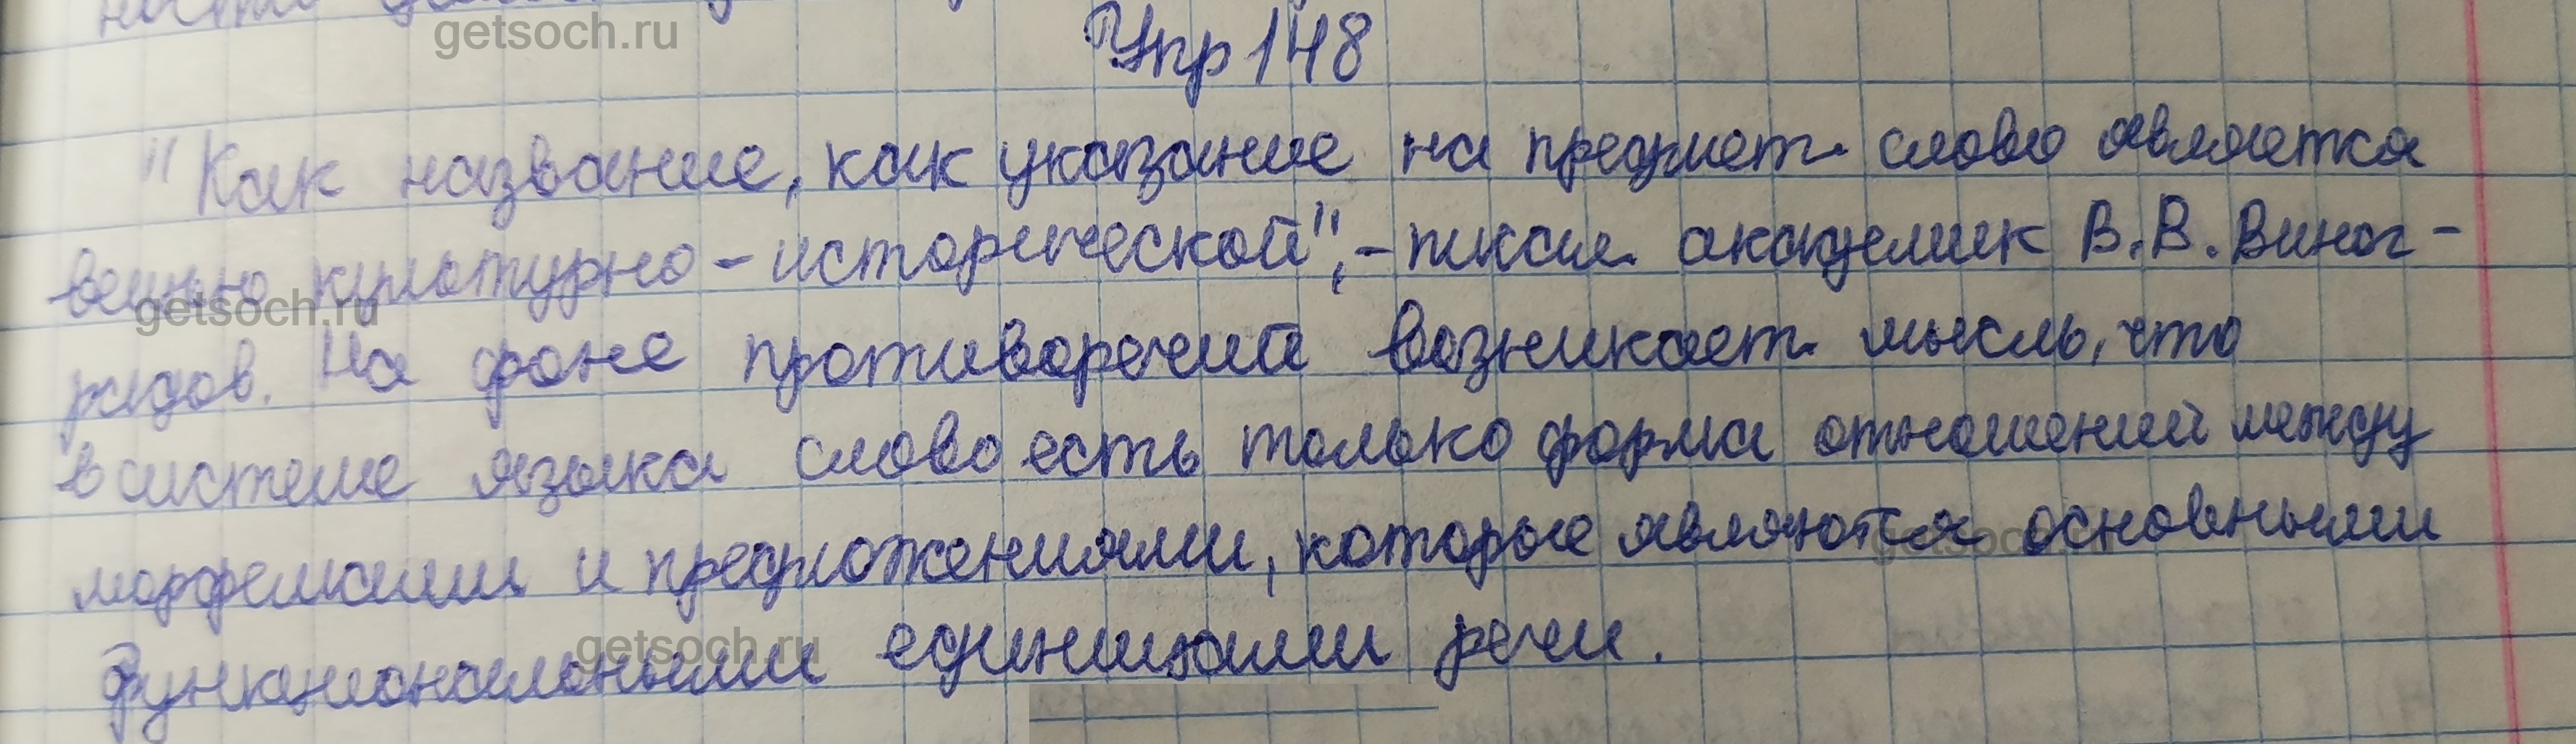 getsoch.ru
Упр 148
"Как название, как указание на предмет слово является
вещью культурно-исторической", - писал академик В.В. Виног-
getsoch.ru
радов. На фоне противоречий возникает мысль, что
в системе языка слово есть только форма отношений между
морфемами и предложениями, которые являются основными
getsoch.ru
функциональными единицами речи.
getsoch.ru